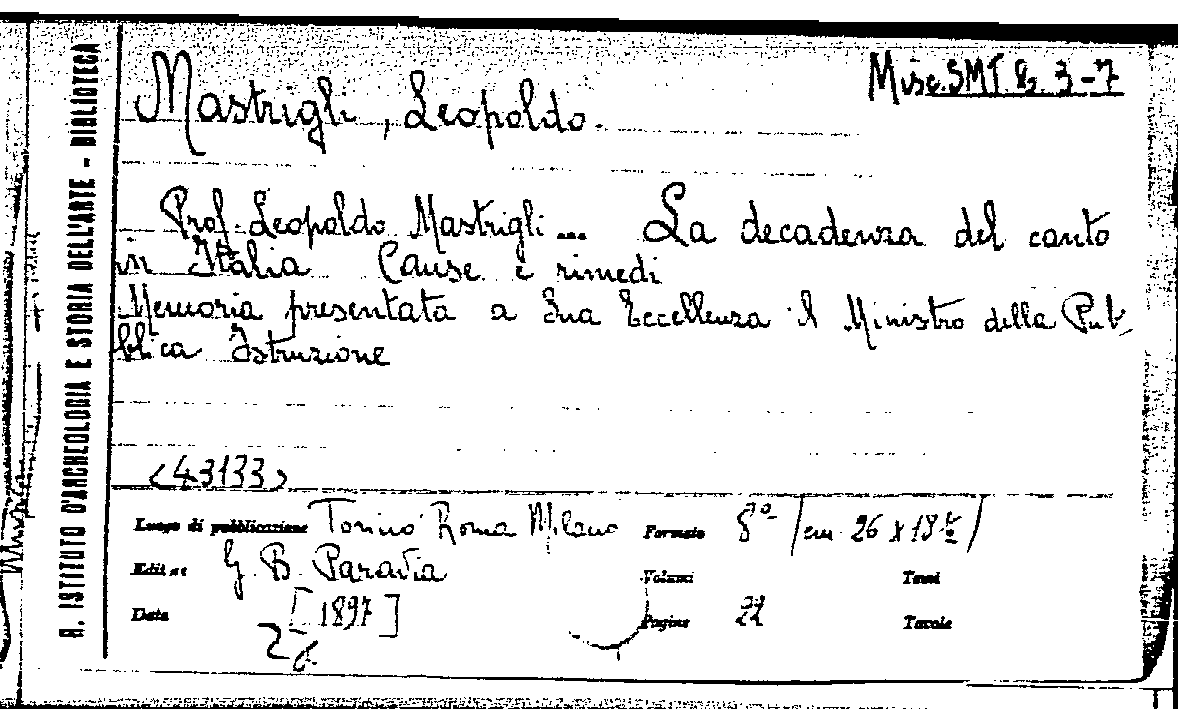 R. ISTITUTO D'ARCHEOLOGIA E STORIA DELL'ARTE - BIBLIOTECA
Misc. SMT B. 3-7
Mastrigli, Leopoldo.
Prof. Leopoldo Mastrigli ... La decadenza del canto
in Italia Cause e rimedi
Memoria presentata a Sua Eccellenza il Ministro della Pub-
blica Istruzione
(43133)
Luogo di pubblicazione Torino Roma Milano Formato 8° / cm 26 x 18
Editore G. B. Paravia Volumi Tomi
Data [1897] Pagine 22 Tavole